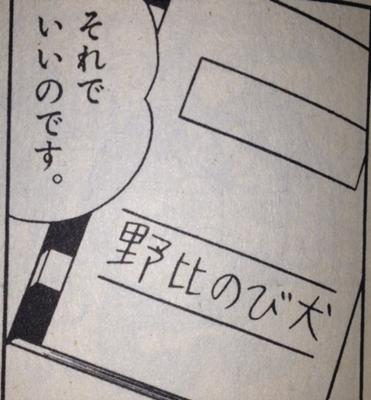 それで
いいのです。
野比のび犬